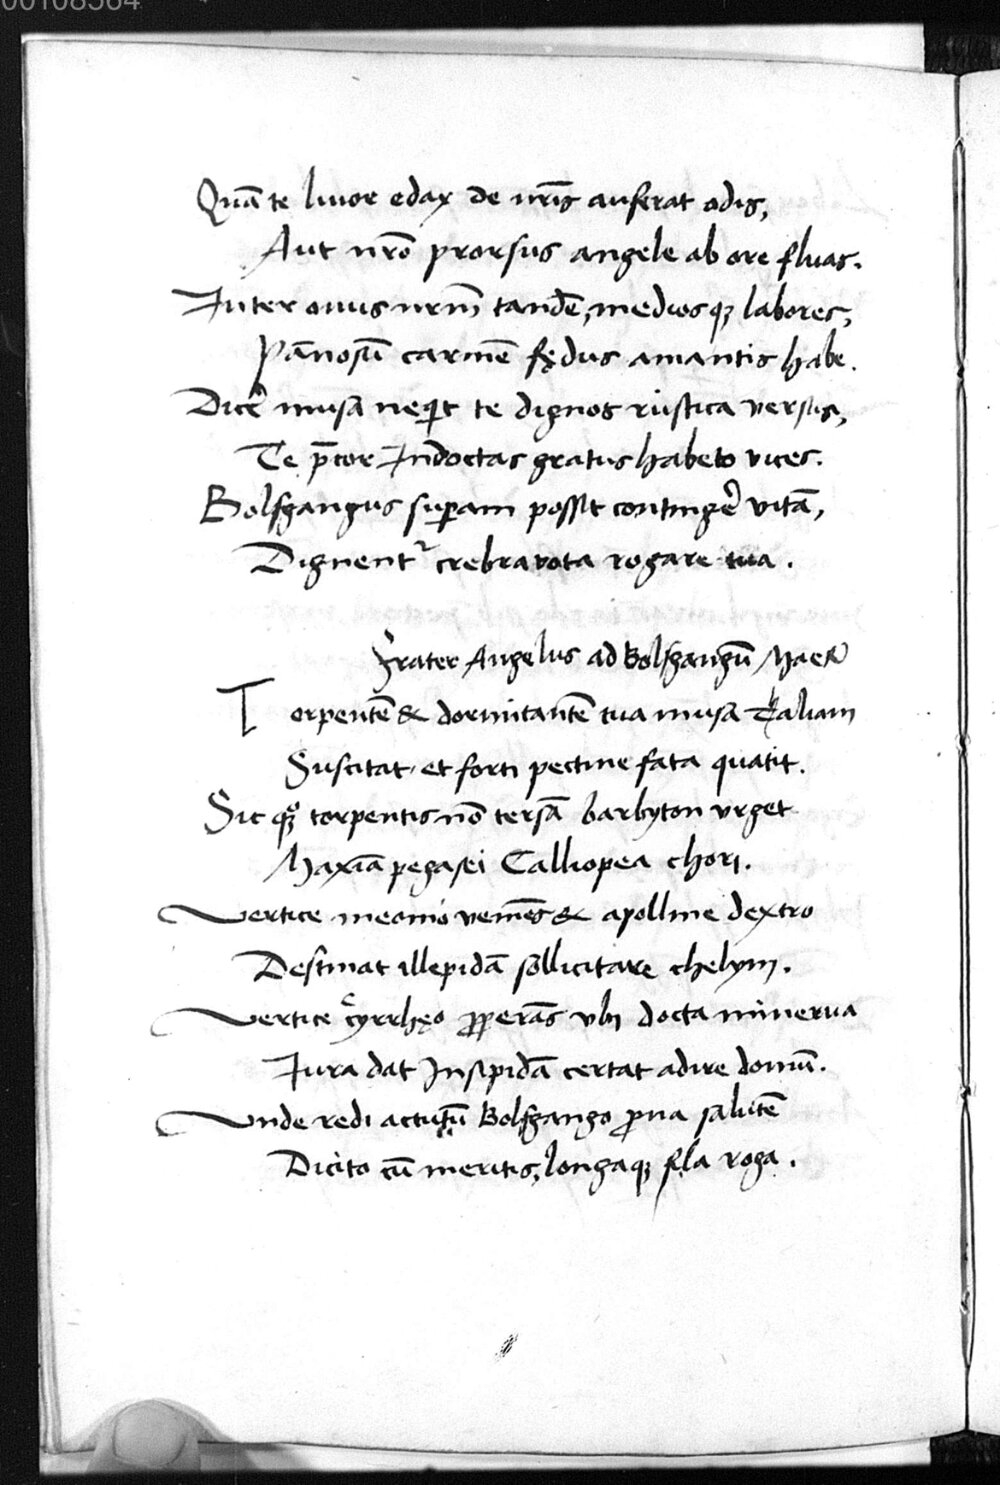 00108564
Quā te liuor edax de nr̄is auferat odis,
Aut nr̄o prorsus angele ab ore fluas.
Inter onus nrm̄ tandē, medios qꝫ labores,
Pānosū carmē fędus amantis habe.
Dicē musā neqit te dignos rustica versus,
Te p̄cor Indoctas gratus habeto vices.
Bolfgangus suꝑam possit contingē vitā,
Dignentr crebra vota rogare tua.
Frater Angelus ad Bolfgangū
Torpentē & dormitantē tua musā Taliam
Suscitat, et forti pectine fata quatit.
Sic qꝫ torpentis nō tersā barbyton vrget
Maxīa pegasei Calliopea chori.
Vertice meonio veniēs & apolline dextro
Destinat illepidā sollicitare chelym.
Vertice Cyrrhęo ꝓꝑerās vbi docta minerua
Iura dat Insipidā certat adire domū.
Vnde redi actutū Bolfgango ꝓna salutē
Dicito cū meritis, longaqꝫ roga.